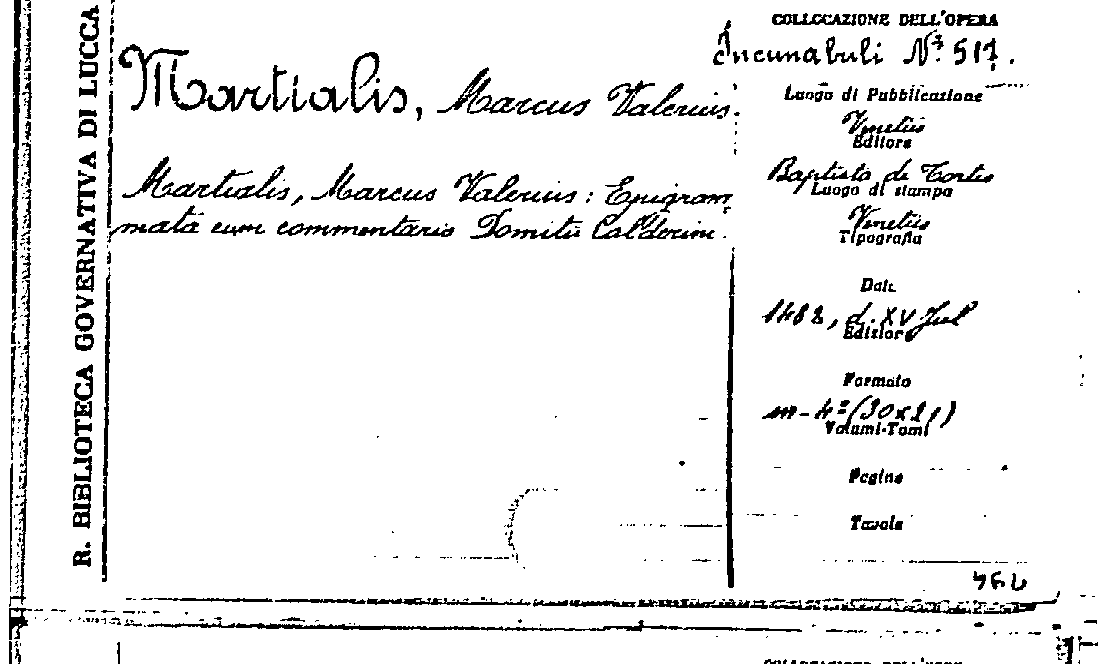 R. BIBLIOTECA GOVERNATIVA DI LUCCA
Martialis, Marcus Valerius.
Martialis, Marcus Valerius: Epigram
mata cum commentario Domitii Calderini.
COLLOCAZIONE DELL'OPERA
Incunabuli N° 517.
Luogo di Pubblicazione
Venetiis
Editore
Baptista de Tortis
Luogo di stampa
Venetiis
Tipografia
Data
1482, d. XV Jul
Edizione
Formato
in-4° (30x21)
Volumi-Tomi
Pagine
Tavole